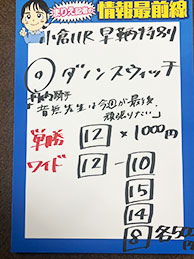 情報最前線
小倉11R 早鞆特別
◎ ダノンスウィッチ
騎手
音無先生は今週が最後、
頑張りたい」
単勝 12 × 1000円
ワイド 12 - 10
15
14
8 各50